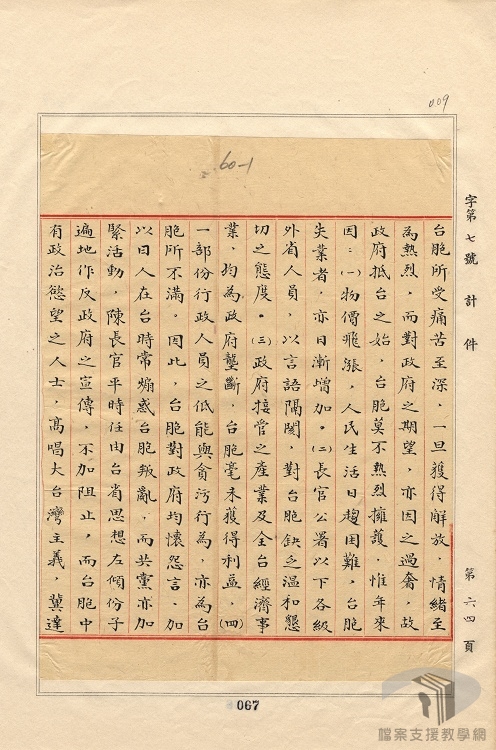 009
60-1
字第七號計件
第六四頁
台胞所受痛苦至深，一旦獲得解放，情緒至
為熱烈，而對政府之期望，亦因之過奢，故
政府抵台之始，台胞莫不熱烈擁護，惟年來
因：㈠物價飛漲，人民生活日趨困難，台胞
失業者，亦日漸增加。㈡長官公署以下各級
外省人員，以言語隔閡，對台胞缺乏溫和懇
切之態度。㈢政府接管之產業及全台經濟事
業，均為政府壟斷，台胞毫未獲得利益，㈣
一部份行政人員之低能與貪污行為，亦為台
胞所不滿。因此，台胞對政府均懷怨言，加
以日人在台時常煽惑台胞叛亂，而共黨亦加
緊活動，陳長官平時任由台省思想左傾份子
遍地作反政府之宣傳，不加阻止，而台胞中
有政治慾望之人士，高唱大台灣主義，冀達
067
檔案支援教學網